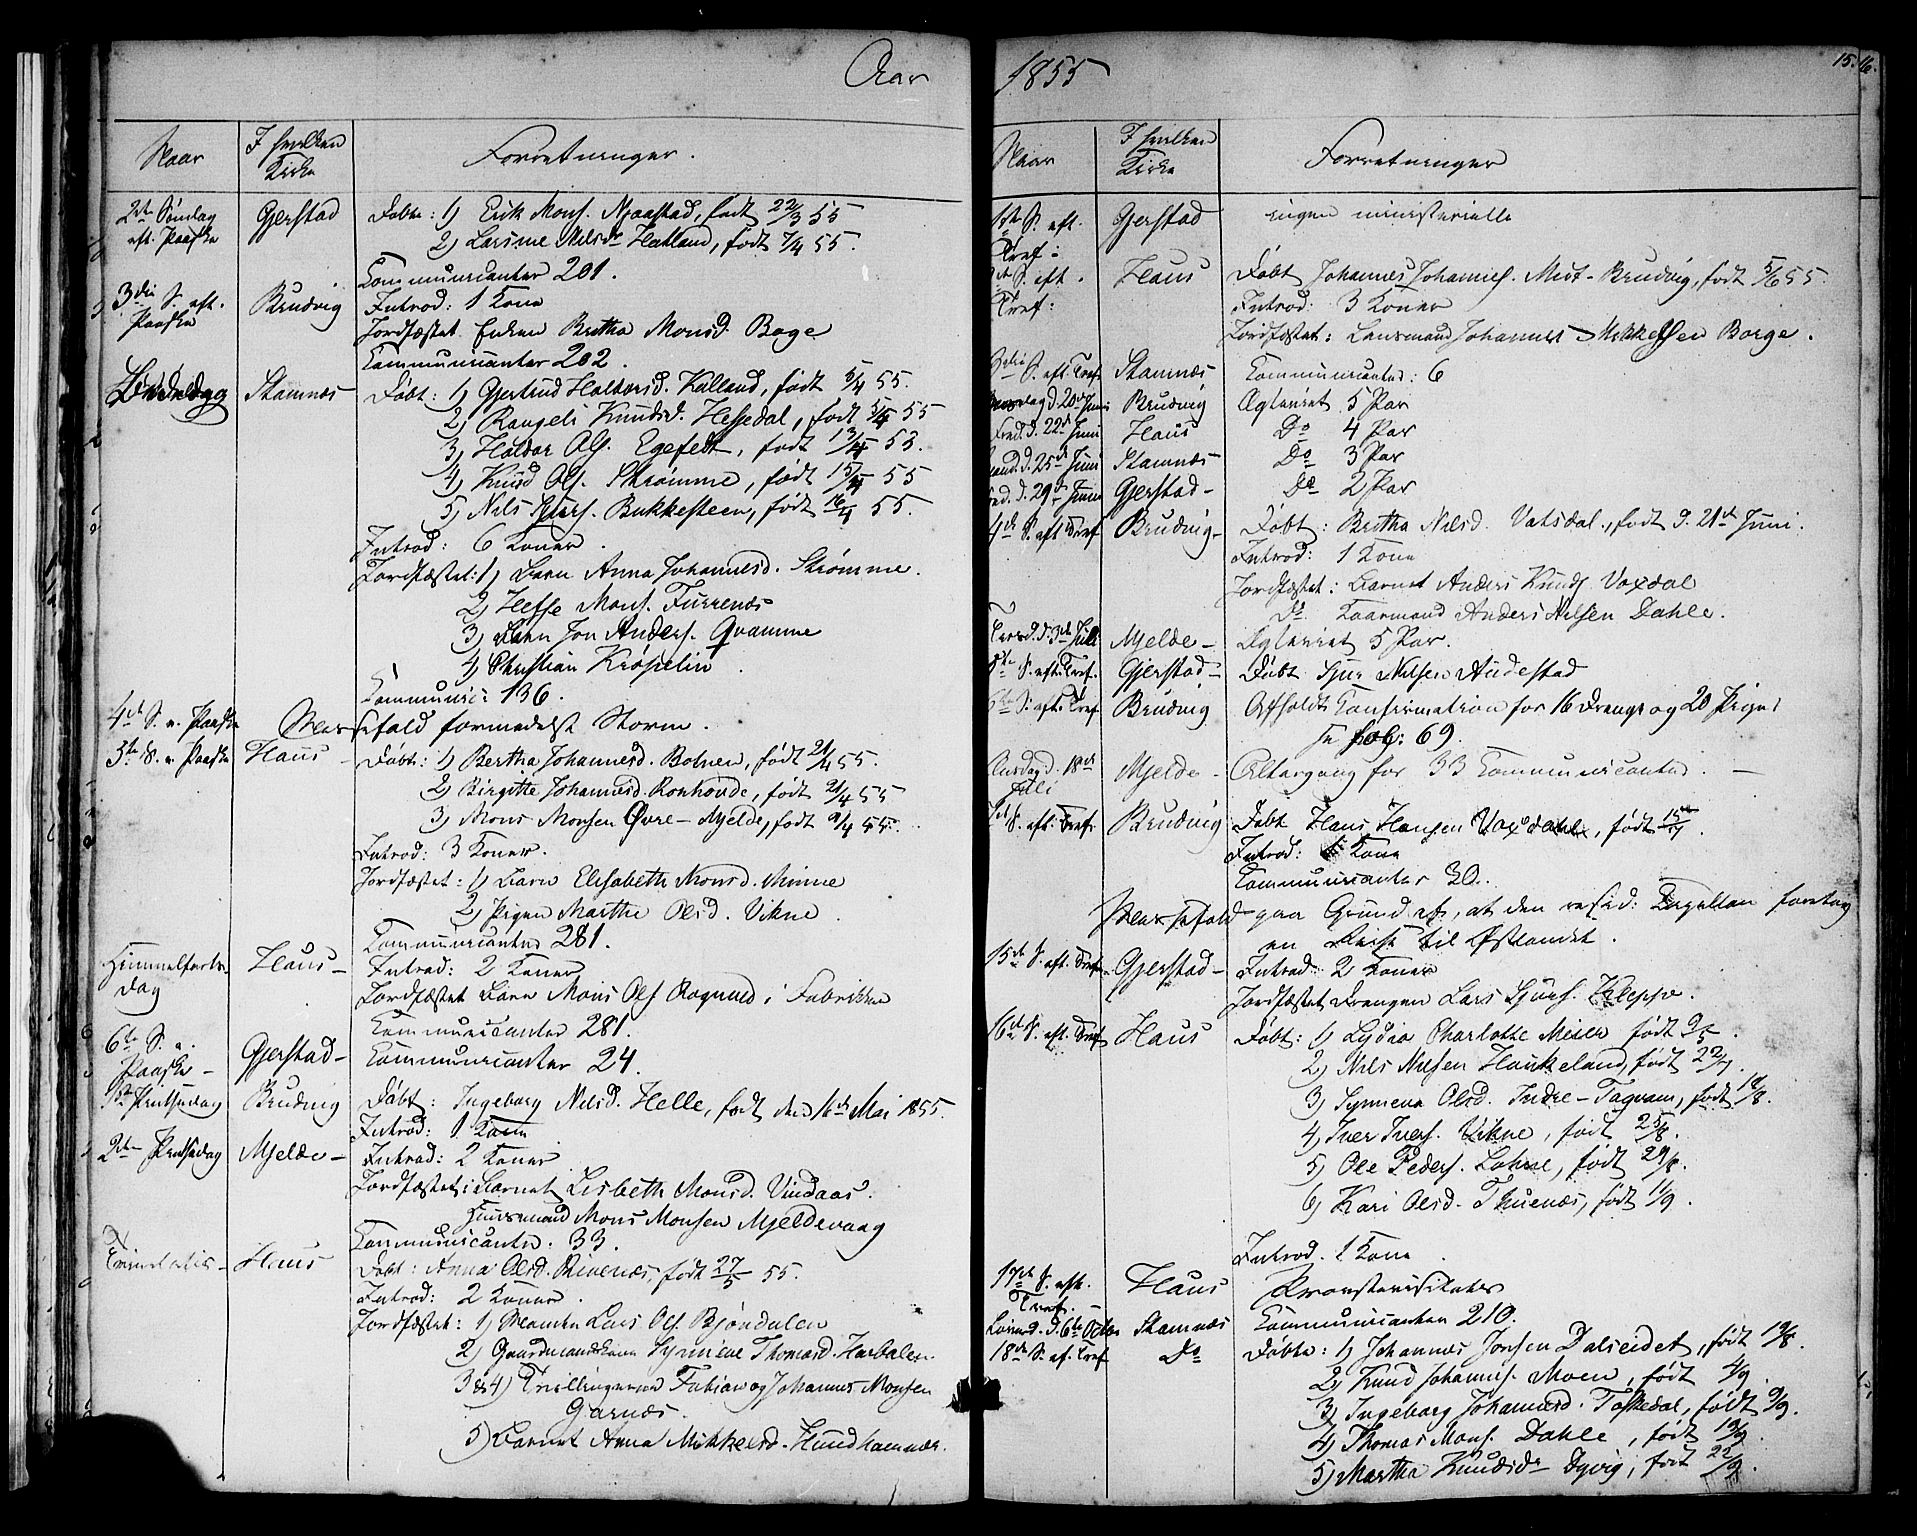 Aar
Naar
I hvilken
Kirke
Forretninger.
2den Søndag
eft. Paaske
Gjerstad
Døbte: 1) Erik Mons. Njaastad, født 22/3 55
2) Larsine Nilsdr Hatland, født 7/4 55.
Communicanter 201.
3die S. eft.
Paaske
Brudvig
Introd: 1 Kone
Jordfæstet Enken Britha Monsd. Boge
Communicanter 202.
Bededag
Stamnæs
Døbt: 1) Gjertrud Haldorsd. Kalland, født 5/4 55.
2) Rangeli Knudsd. Hessedal, født 5/4 55
3) Haldor Ols. Egefedt, født 13/4 53.
4) Knud Ols. Strømme, født 15/4 55
5) Nils Bukkesteen, født 16/4 55.
Introd: 6 Koner.
Jordfæstet: 1) Barn Anna Johannesd. Strømme.
2) Mons. Furrenæs
3) Barn Jon Anders. Qvamme
4) Christian Krøpelin.
Communic: 136.
4de S. e. Paaske
Messefald formedelst Storm.
5te S. e. Paaske
Haus
Døbt: 1) Bertha Johannesd. Botnen, født 21/4 55.
2) Birgitte Johannesd. Ronhovde, født 21/4 55
3) Mons Monsen Øvre-Mjelde, født 9/4 55.
Introd: 3 Koner.
Jordfæstet: 1) Barn Elisabeth Monsd. Minne
2) Pigen Marthe Olsd. Vikne.
Communicanter 281.
Himmelfarts-
dag
Haus
Introd: 2 Koner
Jordfæstet Barn Mons Ols. i Fabrikken
Communicanter 281.
6te S. e.
Paaske
Gjerstad
Communicanter 24.
1ste Pintsedag
Brudvig
Døbt: Ingeborg Nilsd. Helle, født den 16de Mai 1855.
Introd: 1 Kone
2den Pintsedag
Mjelde
Introd: 2 Koner
Jordfæstet: Barnet Lisbeth Monsd. Vindaas.
Huusmand Mons Monsen Mjeldevaag
Communicanter: 33.
Trinitatis
Haus
Døbt: Anna Olsd. Rivenæs, født 27/5 55.
Introd: 2 Koner.
Jordfæstet: 1) Manden Lars Ols. Bjøndalen
2) Gaardmandskone Synneve Thomasd.
3 & 4) Trillingerne Fabian og Johannes Monsen
Garnæs.
5) Barnet Anna Mikkelsd. Hundhamner.
1855
15. 16.
Naar
I hvilken
Kirke
Forretninger
1ste S. eft.
Tref:
Gjerstad
ingen ministerielle
S. eft.
Tref:
Haus
Døbt Johannes Johannes. Brudvig, født 5/6 55.
Introd: 3 Koner
Jordfæstet: Lensmand Johannes Mikkelsen Borge.
3die S. eft. Tref.
Stamnæs
Communicanter: 6
d. 20de Juni
Brudvig
Ægteviet 5 Par
Fred. d. 22de Juni
Haus
Do 4 Par
Mand. d. 25de Juni
Stamnæs
Do 3 Par
Fred. d. 29de Juni
Gjerstad
Do 2 Par
4de S. eft. Tref.
Brudvig
Døbt: Britha Nilsd. Vatsdal, født d. 21de Juni.
Introd: 1 Kone
Jordfæstet: Barnet Anders Knuds. Voxdal
Do. Kaarmand Anders Nilsen Dahle.
Tirsd. d. 3de Juli
Mjelde
Ægteviet 5 Par.
5te S. eft. Tref.
Gjerstad
Døbt Sjur Nilsen Audestad
6te S. eft. Tref
Brudvig
Afholdt Confirmation for 16 Drenge og 20 Piger
se fol: 69.
Onsdag d. 18de
Juli
Mjelde
Altergang for 33 Communicanter.
S. eft. Tref.
Brudvig
Døbt Hans Hansen Voxdahl, født
Introd: Kone
Communicanter 30.
Messefald paa Grund af, at den resid: Capellan foretog
en Reise til Østlandet.
15de S. eft. Tref.
Gjerstad
Introd: 2 Koner
Jordfæstet Drengen Lars Sjurs. Kleppe.
16de S. eft. Tref
Haus
Døbt: 1) Lydia Charlotte Meier født 9/5.
2) Nils Nilsen Haukeland, født 22/7.
3) Synneva Olsd. Indre-Tagvam, født 14/8.
4) Iver Ivers. Vikne, født 25/8.
5) Ole Peders. Lohne, født 29/8.
6) Kari Olsd. Thuenæs, født 1/9.
Introd. 1 Kone.
17de S. eft.
Tref.
Haus
Provstevisitats
Communicanter 210.
Løverd. d. 6te Octbr
Stamnæs
18de S. ef. Tref
Do
Døbte: 1) Johannes Jonsen Dalseidet, født 19/8.
2) Knud Johannes. Moen, født 4/9.
3) Ingeborg Johannesd. Toskedal, født 9/9.
4) Thomas Mons. Dahle, født 19/9.
5) Martha Knudsdr Dyvig, født 22/9.